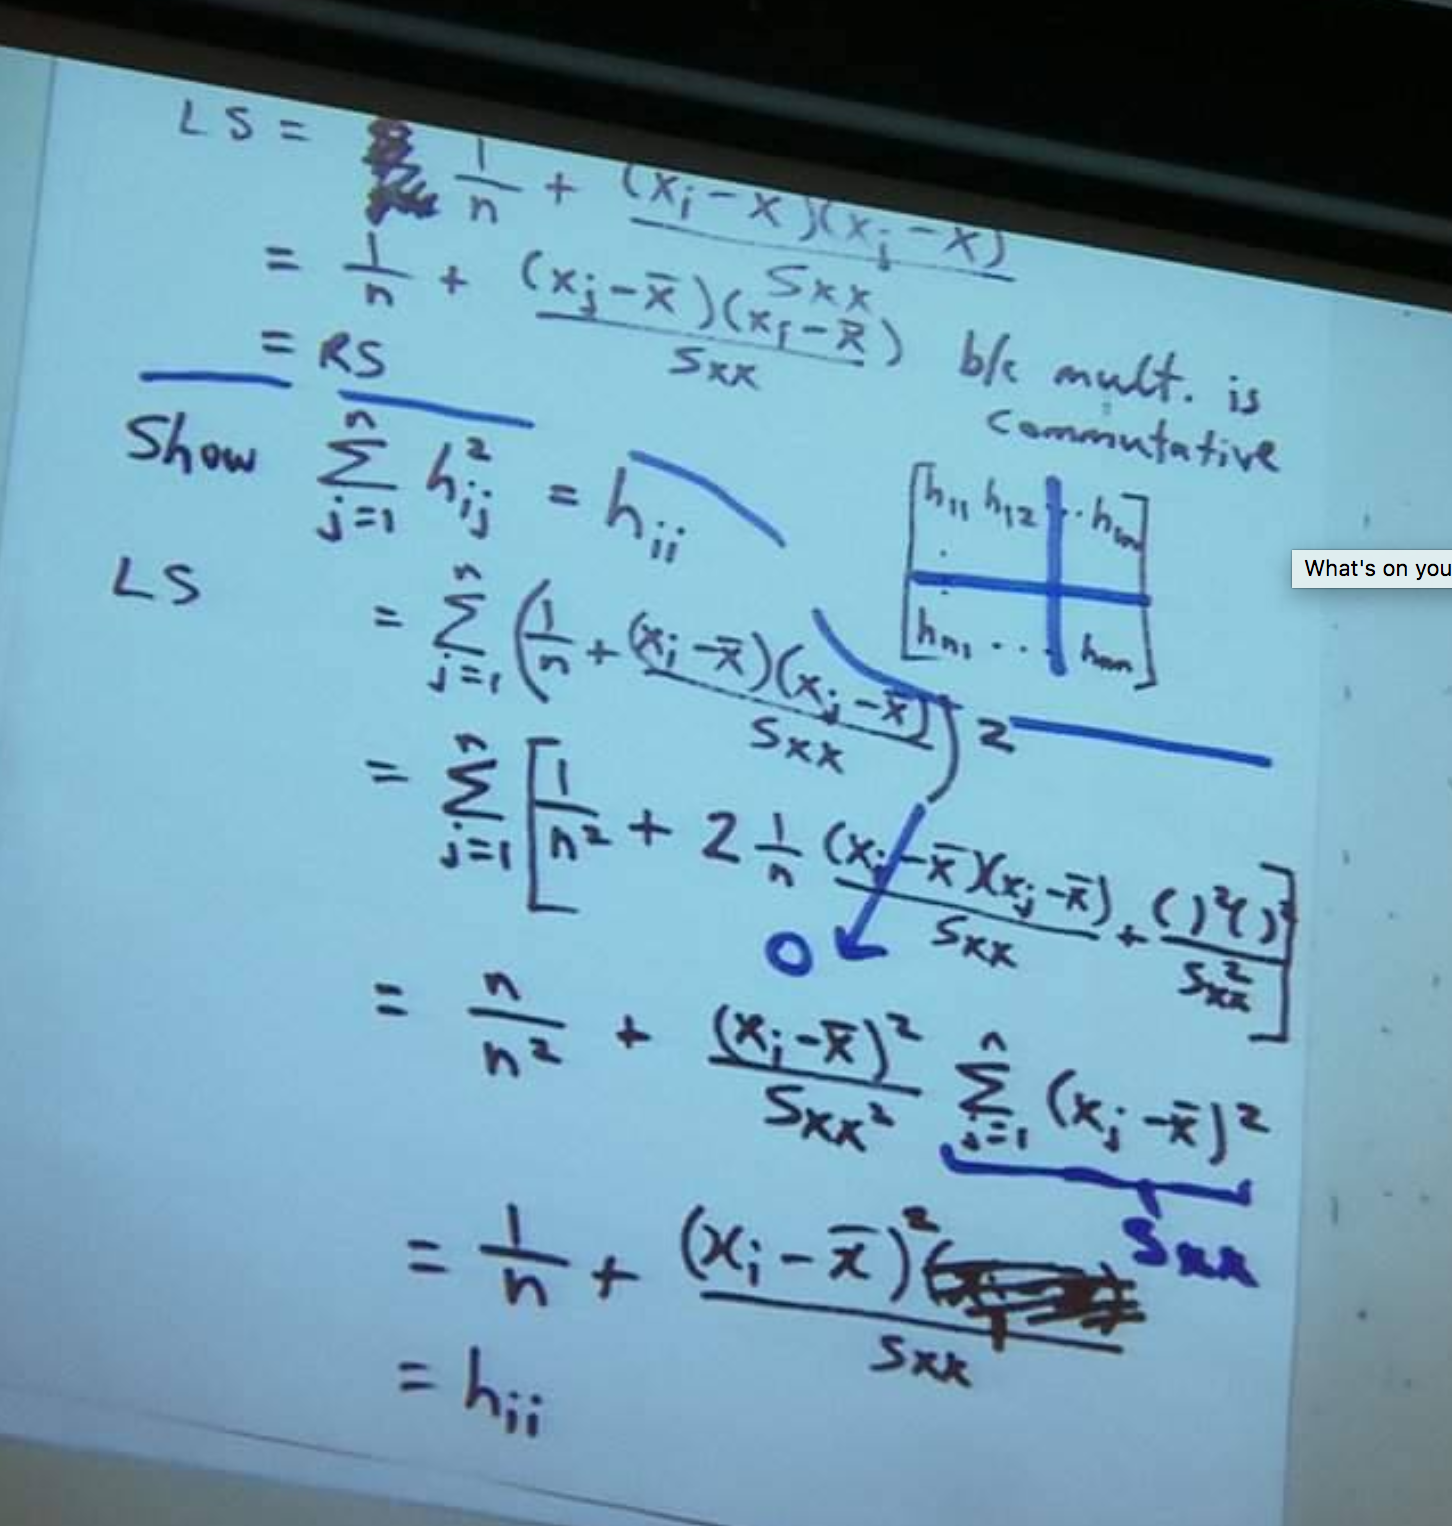 LS = 1/n + (xᵢ - x)(xⱼ - x) / Sxx
= 1/n + (xⱼ - x̄)(xᵢ - x̄) / Sxx b/c mult. is
commutative
= RS
Show Σⁿⱼ₌₁ hᵢⱼ² = hᵢᵢ
[h₁₁ h₁₂ ·· h₁ₙ
hₙ₁ ... hₙₙ]
LS = Σⁿⱼ₌₁ (1/n + (xᵢ - x̄)(xⱼ - x̄) / Sxx)²
= Σⁿⱼ₌₁ [1/n² + 2 1/n (xᵢ - x̄)(xⱼ - x̄) / Sxx + ( )²( )² / Sxx²]
0
= n/n² + (xᵢ - x̄)² / Sxx² Σⁿⱼ₌₁ (xⱼ - x̄)²
Sxx
= 1/n + (xᵢ - x̄)² / Sxx
= hᵢᵢ
What's on you